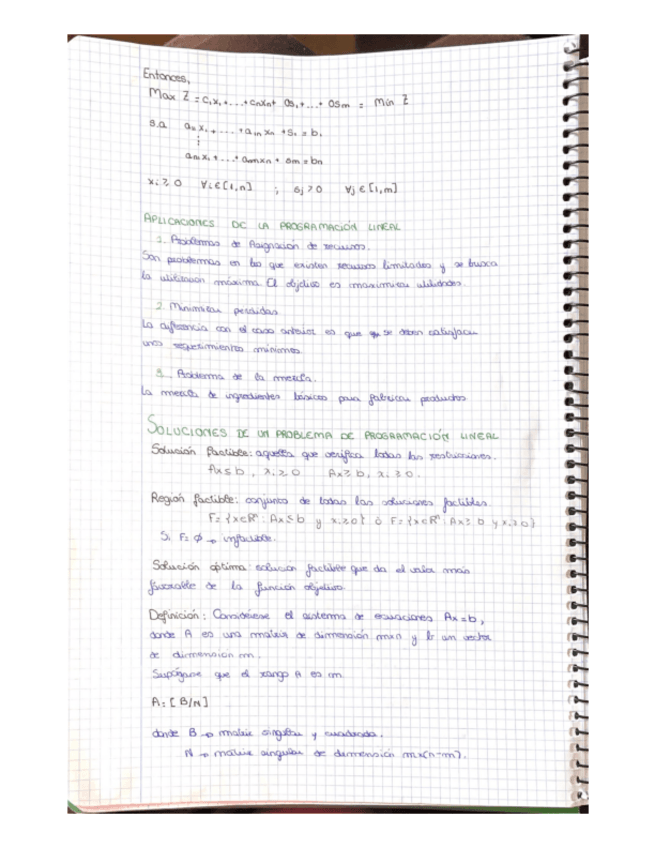 Entonces,
Max Z = c₁x₁ + ... + cnxn + 0s₁ + ... + 0sm = Min Z
s.a a₁₁x₁ + ... + a₁n xn + s₁ = b₁
⋮
am₁x₁ + ... + amnxn + sm = bn
xi ≥ 0 ∀i ∈ [1,n] ; sj ≥ 0 ∀j ∈ [1,m]
APLICACIONES DE LA PROGRAMACIÓN LINEAL
1. Problemas de Asignación de recursos.
Son problemas en los que existen recursos limitados y se busca
la utilización máxima. El objetivo es maximizar utilidades.
2. Minimizar perdidas
La diferencia con el caso anterior es que se deben satisfacer
unos requerimientos mínimos
3. Problema de la mezcla.
La mezcla de ingredientes básicos para fabricar productos
SOLUCIONES DE UN PROBLEMA DE PROGRAMACIÓN LINEAL
Solución factible: aquella que verifica todas las restricciones.
Ax ≤ b , xi ≥ 0 Ax ≥ b, xi ≥ 0.
Región factible: conjunto de todas las soluciones factibles
F = {x∈Rⁿ : Ax ≤ b y xi ≥ 0} ó F = {x∈Rⁿ : Ax ≥ b y xi ≥ 0}
Si F = ∅ → infactible.
Solución óptima: solución factible que da el valor más
favorable de la función objetivo.
Definición: Considérese el sistema de ecuaciones Ax = b,
donde A es una matriz de dimensión mxn y b un vector
de dimensión m.
Supóngase que el rango A es m
A = [B/N]
donde B → matriz singular y cuadrada.
N → matriz singular de dimensión mx(n-m).